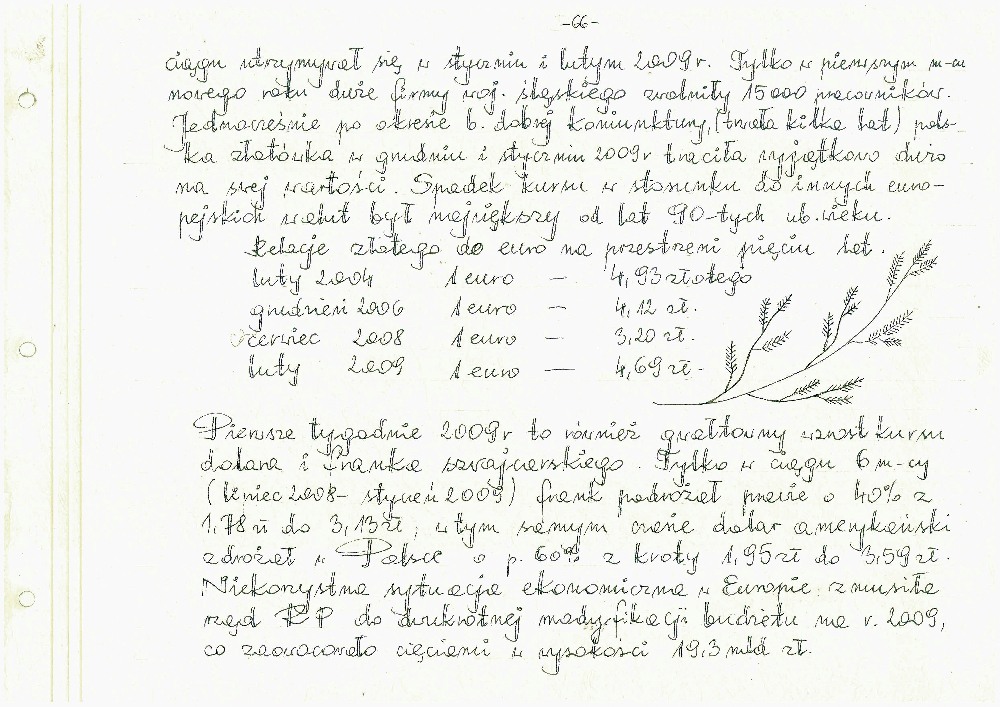 -66-
ciągu utrzymywał się w styczniu i lutym 2009 r. Tylko w pierwszym m-cu
nowego roku duże firmy woj. śląskiego zwolniły 15 000 pracowników.
Jednocześnie po okresie b. dobrej koniunktury, (trwała kilka lat) pols-
ka złotówka w grudniu i styczniu 2009 r traciła wyjątkowo dużo
na swej wartości. Spadek kursu w stosunku do innych euro-
pejskich walut był największy od lat 90-tych ub. wieku.
Relacje złotego do euro na przestrzeni pięciu lat.
luty 2004 1 euro - 4,93 złotego
grudzień 2006 1 euro - 4,12 zł.
czerwiec 2008 1 euro - 3,20 zł.
luty 2009 1 euro - 4,69 zł.-
Pierwsze tygodnie 2009 r to również gwałtowny wzrost kursu
dolara i franka szwajcarskiego. Tylko w ciągu 6 m-cy
(lipiec 2008 - styczeń 2009) frank podrożał prawie o 40% z
1,78 zł do 3,13 zł, w tym samym czasie dolar amerykański
zdrożał w Polsce o p. 60% z kwoty 1,95 zł do 3,59 zł.
Niekorzystna sytuacja ekonomiczna w Europie zmusiła
rząd RP do dwukrotnej modyfikacji budżetu na r. 2009,
co zaowocowało cięciami w wysokości 19,3 mld zł.